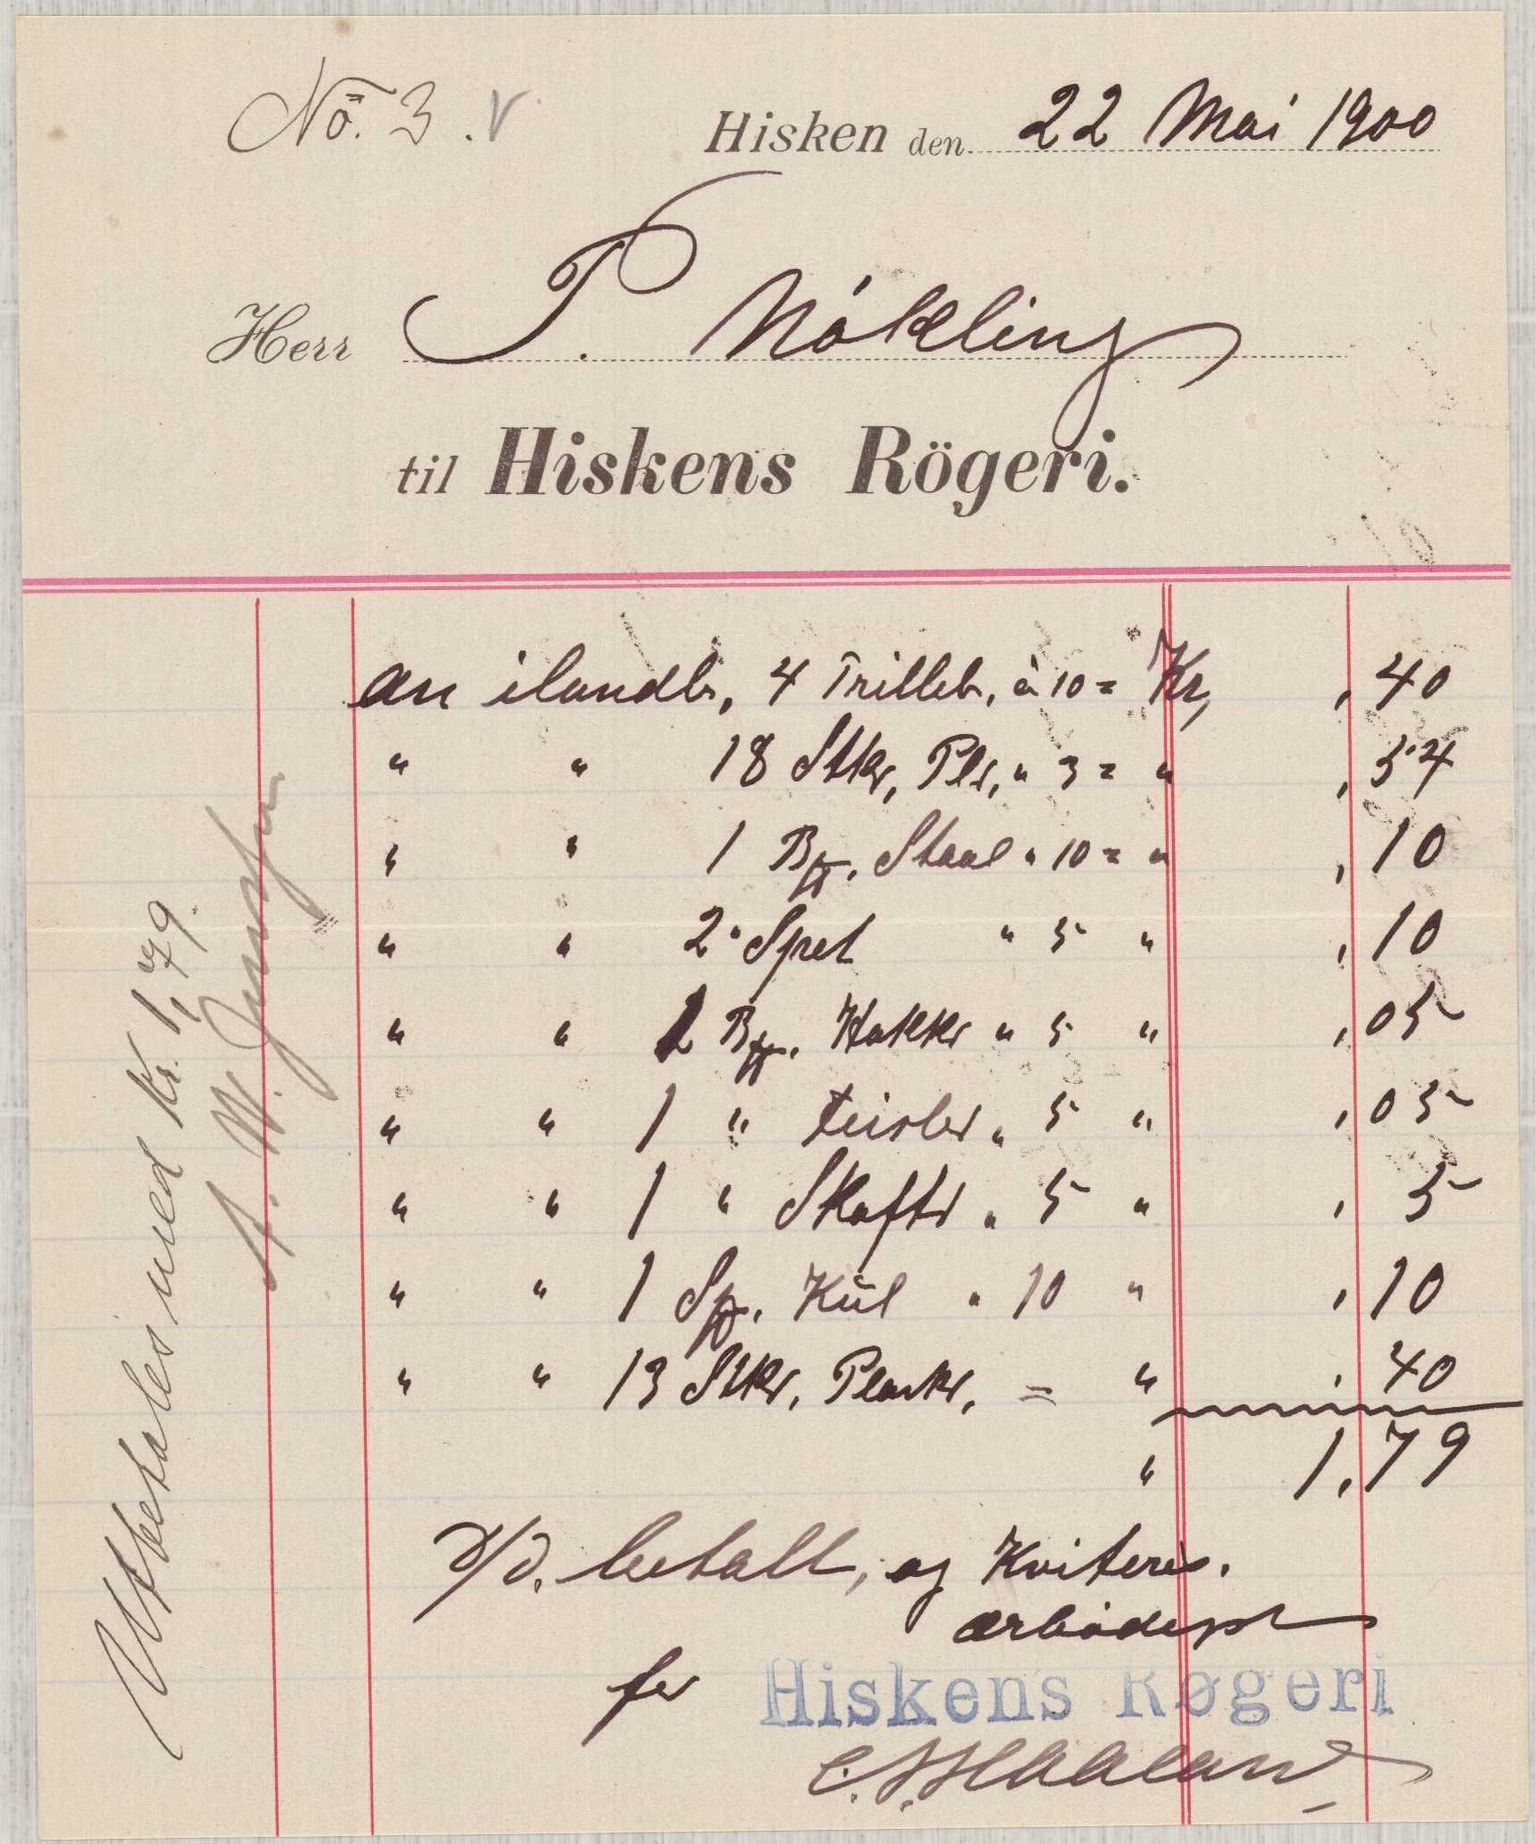 No. 3. V
Hisken den 22 Mai 1900
Herr T. Nökling
til Hiskens Rögeri.
an ilandb, 4 Trilleb, à 10 = Kr, , 40
" " 18 Stkr, Plr, " 3 = " , 54
" " 1 Bg. Staal " 10 = " , 10
" " 2 Spet " 5 " , 10
" " 1 Hakkr " 5 " , 05
" " 1 " " 5 " , 05
" " 1 " Skaftr " 5 " , 5
" " 1 Kul " 10 " , 10
" " 13 Stkr, Plankr, = " , 40
" 1,79
D/D. betalt, og Kviteres.
ærbödigst
for Hiskens Røgeri
Utbetales med Kr. 1,79.
A. W.